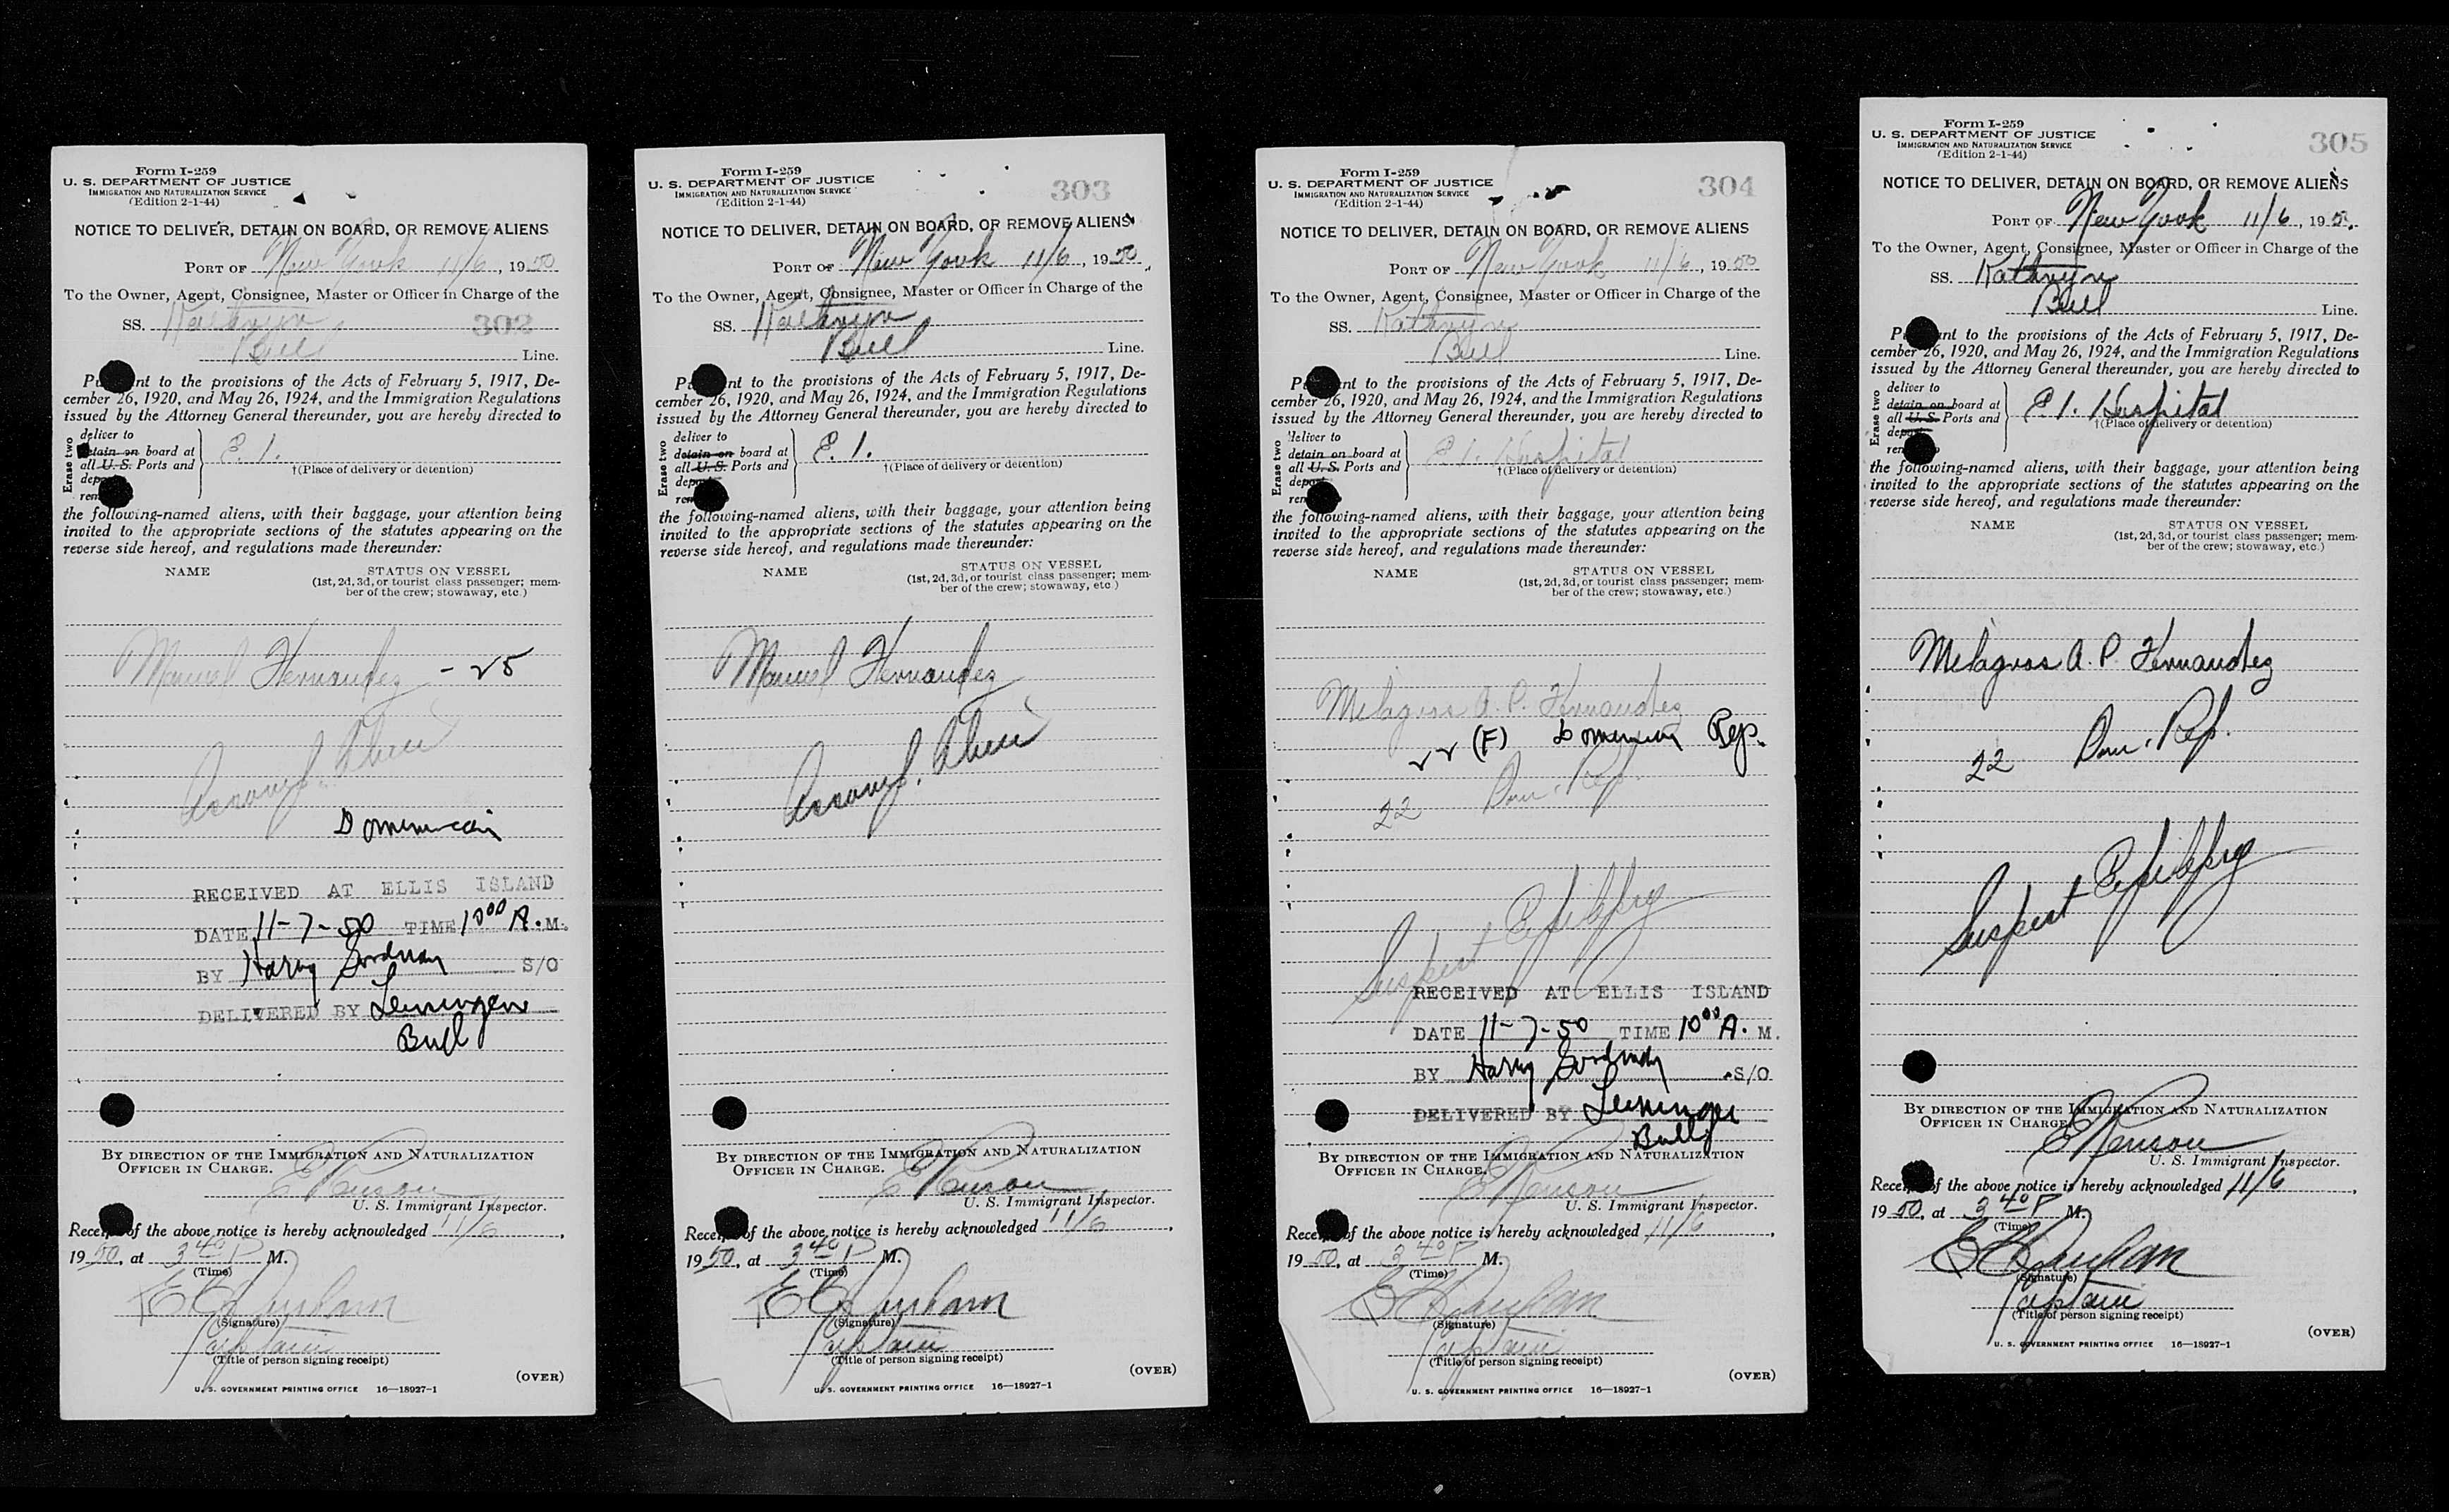 Form I-259
U. S. DEPARTMENT OF JUSTICE
IMMIGRATION AND NATURALIZATION SERVICE
(Edition 2-1-44)
NOTICE TO DELIVER, DETAIN ON BOARD, OR REMOVE ALIENS
PORT OF New York 11/6, 1950
To the Owner, Agent, Consignee, Master or Officer in Charge of the
SS. Kathryn
302
Bull Line.
Pu nt to the provisions of the Acts of February 5, 1917, De-
cember 26, 1920, and May 26, 1924, and the Immigration Regulations
issued by the Attorney General thereunder, you are hereby directed to
Erase two
deliver to
detain on board at
all U. S. Ports and
dep
rem
E. I.
†(Place of delivery or detention)
the following-named aliens, with their baggage, your attention being
invited to the appropriate sections of the statutes appearing on the
reverse side hereof, and regulations made thereunder:
NAME STATUS ON VESSEL
(1st, 2d, 3d, or tourist class passenger; mem-
ber of the crew; stowaway, etc.)
Manuel Hernandez - 25
Dominican
RECEIVED AT ELLIS ISLAND
DATE 11-7-50 TIME 10 00 A. M.
BY Harry S/O
DELIVERED BY
Bull
BY DIRECTION OF THE IMMIGRATION AND NATURALIZATION
OFFICER IN CHARGE.
U. S. Immigrant Inspector.
Receip of the above notice is hereby acknowledged 11/6,
1950, at 3 40 P M.
(Time)
(Signature)
Captain
(Title of person signing receipt)
(OVER)
U. S. GOVERNMENT PRINTING OFFICE 16—18927-1
Form I-259
U. S. DEPARTMENT OF JUSTICE
IMMIGRATION AND NATURALIZATION SERVICE
(Edition 2-1-44)
303
NOTICE TO DELIVER, DETAIN ON BOARD, OR REMOVE ALIENS
PORT OF New York 11/6, 1950
To the Owner, Agent, Consignee, Master or Officer in Charge of the
SS. Kathryn
Bull Line.
Pu nt to the provisions of the Acts of February 5, 1917, De-
cember 26, 1920, and May 26, 1924, and the Immigration Regulations
issued by the Attorney General thereunder, you are hereby directed to
Erase two
deliver to
detain on board at
all U. S. Ports and
depo
rem
E. I.
†(Place of delivery or detention)
the following-named aliens, with their baggage, your attention being
invited to the appropriate sections of the statutes appearing on the
reverse side hereof, and regulations made thereunder:
NAME STATUS ON VESSEL
(1st, 2d, 3d, or tourist class passenger; mem-
ber of the crew; stowaway, etc.)
Manuel Hernandez
BY DIRECTION OF THE IMMIGRATION AND NATURALIZATION
OFFICER IN CHARGE.
U. S. Immigrant Inspector.
Receip of the above notice is hereby acknowledged 11/6,
1950, at 3 40 P M.
(Time)
(Signature)
Captain
(Title of person signing receipt)
(OVER)
U. S. GOVERNMENT PRINTING OFFICE 16—18927-1
Form I-259
U. S. DEPARTMENT OF JUSTICE
IMMIGRATION AND NATURALIZATION SERVICE
(Edition 2-1-44)
304
NOTICE TO DELIVER, DETAIN ON BOARD, OR REMOVE ALIENS
PORT OF New York 11/6, 1950
To the Owner, Agent, Consignee, Master or Officer in Charge of the
SS. Kathryn
Bull Line.
Pu nt to the provisions of the Acts of February 5, 1917, De-
cember 26, 1920, and May 26, 1924, and the Immigration Regulations
issued by the Attorney General thereunder, you are hereby directed to
Erase two
deliver to
detain on board at
all U. S. Ports and
depo
rem
E. I. Hospital
†(Place of delivery or detention)
the following-named aliens, with their baggage, your attention being
invited to the appropriate sections of the statutes appearing on the
reverse side hereof, and regulations made thereunder:
NAME STATUS ON VESSEL
(1st, 2d, 3d, or tourist class passenger; mem-
ber of the crew; stowaway, etc.)
Milagros A. P. Hernandez
22 (F) Dominican Rep.
22 Dom. Rep.
Suspect Epilepsy
RECEIVED AT ELLIS ISLAND
DATE 11-7-50 TIME 10 00 A. M.
BY Harry S/O
DELIVERED BY
Bull
BY DIRECTION OF THE IMMIGRATION AND NATURALIZATION
OFFICER IN CHARGE.
U. S. Immigrant Inspector.
Receip of the above notice is hereby acknowledged 11/6,
1950, at 3 40 P M.
(Time)
(Signature)
Captain
(Title of person signing receipt)
(OVER)
U. S. GOVERNMENT PRINTING OFFICE 16—18927-1
Form I-259
U. S. DEPARTMENT OF JUSTICE
IMMIGRATION AND NATURALIZATION SERVICE
(Edition 2-1-44)
305
NOTICE TO DELIVER, DETAIN ON BOARD, OR REMOVE ALIENS
PORT OF New York 11/6, 1950
To the Owner, Agent, Consignee, Master or Officer in Charge of the
SS. Kathryn
Bull Line.
P nt to the provisions of the Acts of February 5, 1917, De-
cember 26, 1920, and May 26, 1924, and the Immigration Regulations
issued by the Attorney General thereunder, you are hereby directed to
Erase two
deliver to
detain on board at
all U. S. Ports and
depo
rem
E I. Hospital
†(Place of delivery or detention)
the following-named aliens, with their baggage, your attention being
invited to the appropriate sections of the statutes appearing on the
reverse side hereof, and regulations made thereunder:
NAME STATUS ON VESSEL
(1st, 2d, 3d, or tourist class passenger; mem-
ber of the crew; stowaway, etc.)
Milagros A. P. Hernandez
22 Dom. Rep.
Suspect Epilepsy
BY DIRECTION OF THE IMMIGRATION AND NATURALIZATION
OFFICER IN CHARGE.
U. S. Immigrant Inspector.
Recei of the above notice is hereby acknowledged 11/6,
1950, at 3 40 P M.
(Time)
(Signature)
Captain
(Title of person signing receipt)
(OVER)
U. S. GOVERNMENT PRINTING OFFICE 16—18927-1